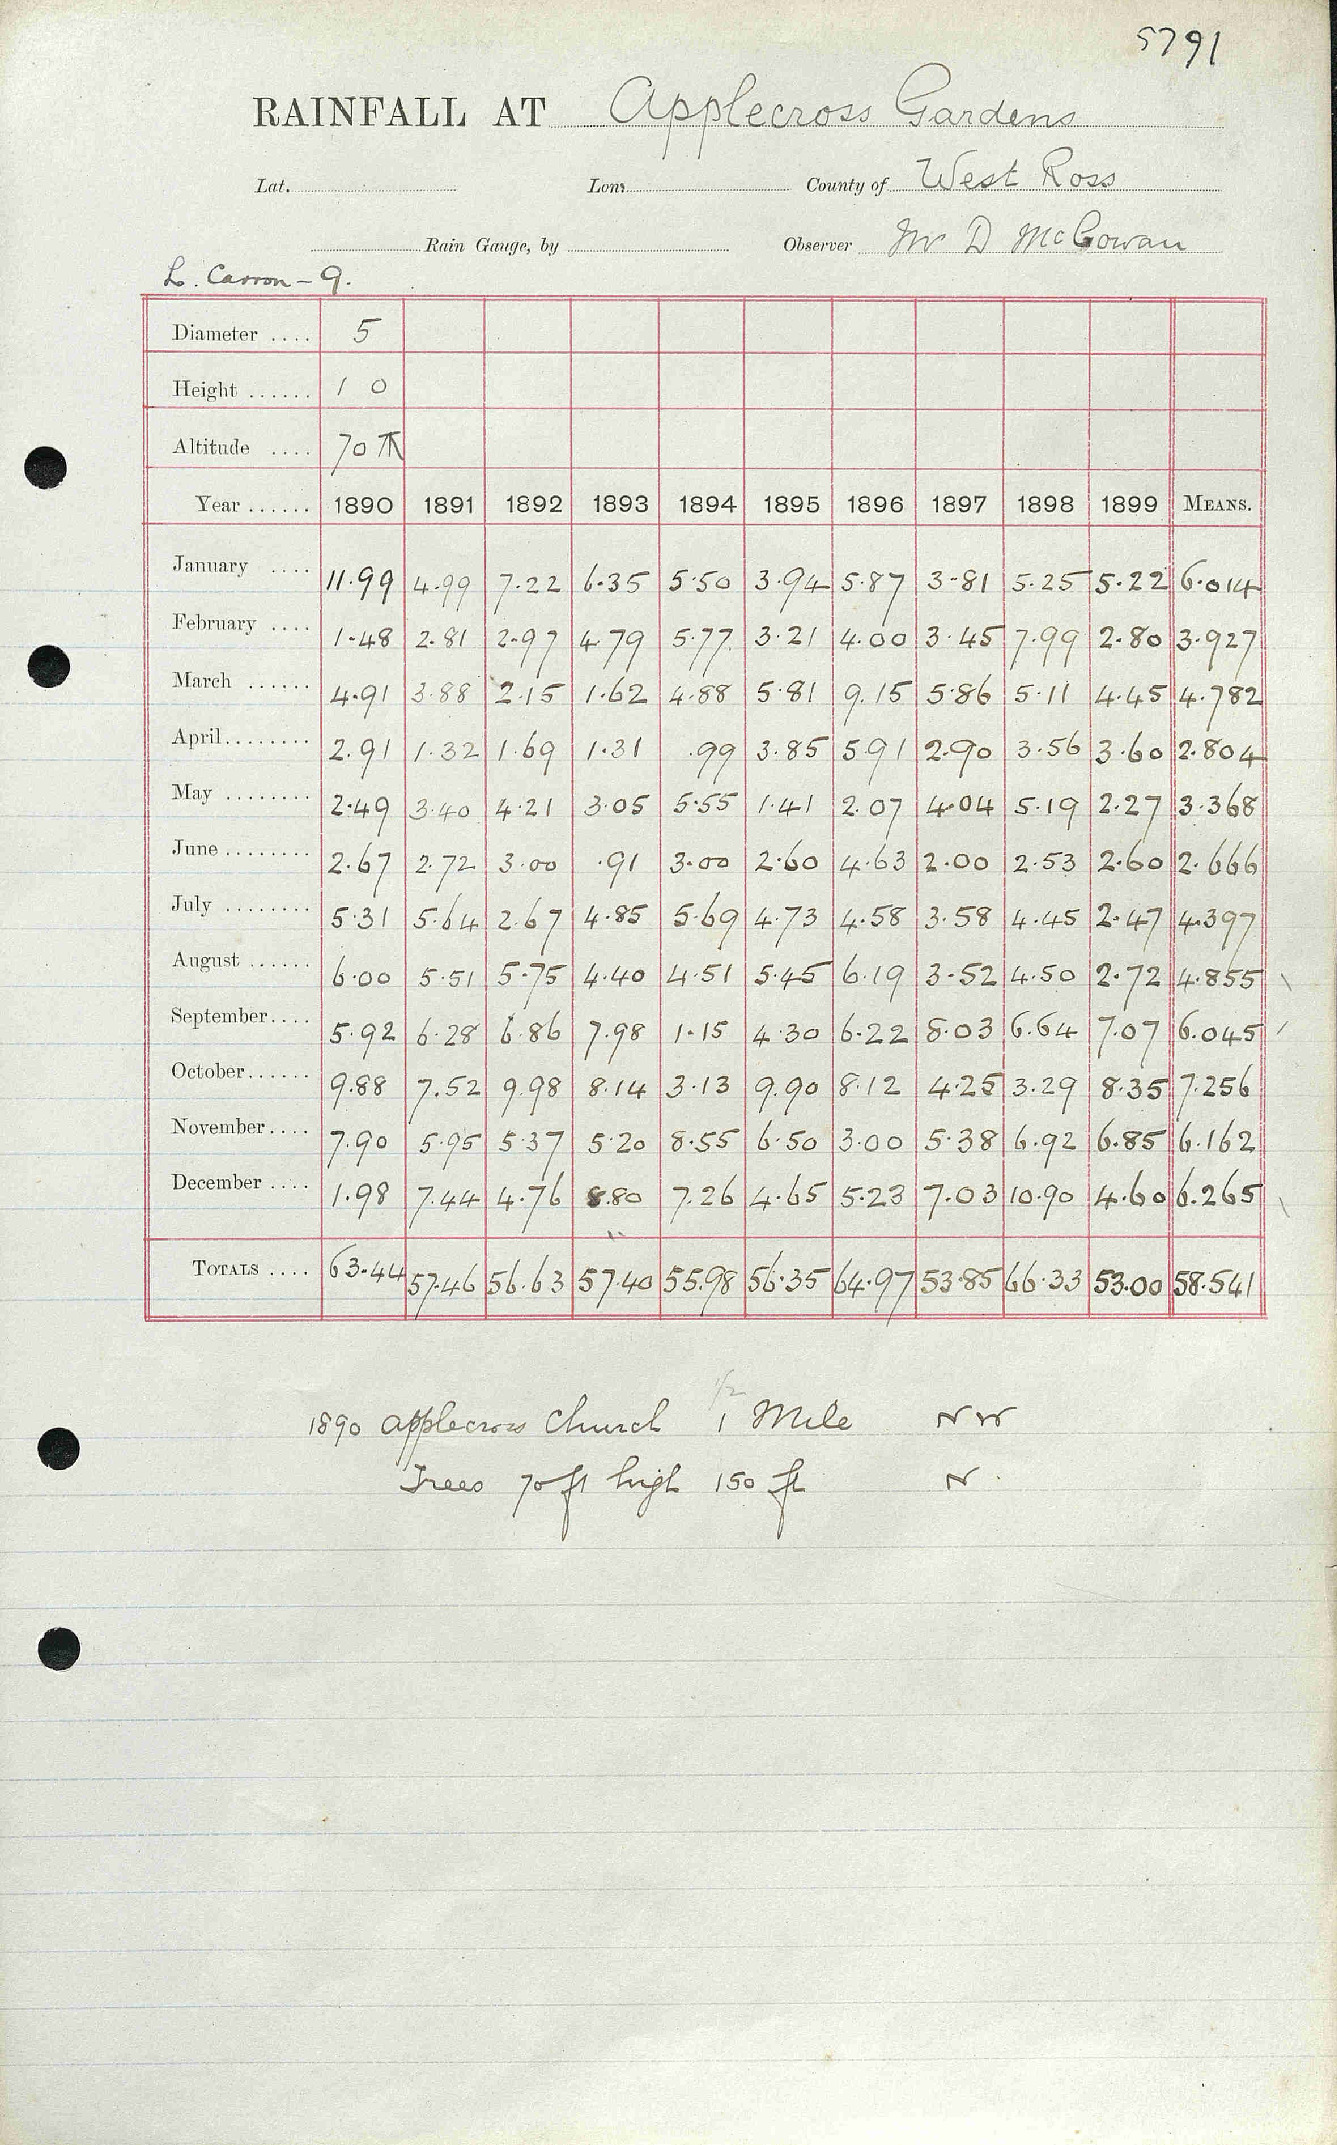 5791
RAINFALL AT Applecross Gardens
Lat. Lon. County of West Ross
Rain Gauge, by Observer Mr D McGowan
L. Carron - 9.
Diameter .... 5
Height ...... 1 0
Altitude .... 70 ft
Year ...... 1890 1891 1892 1893 1894 1895 1896 1897 1898 1899 MEANS.
January .... 11.99 4.99 7.22 6.35 5.50 3.94 5.87 3.81 5.25 5.22 6.014
February .... 1.48 2.81 2.97 4.79 5.77 3.21 4.00 3.45 7.99 2.80 3.927
March ...... 4.91 3.88 2.15 1.62 4.88 5.81 9.15 5.86 5.11 4.45 4.782
April........ 2.91 1.32 1.69 1.31 .99 3.85 5.91 2.90 3.56 3.60 2.804
May ........ 2.49 3.40 4.21 3.05 5.55 1.41 2.07 4.04 5.19 2.27 3.368
June ........ 2.67 2.72 3.00 .91 3.00 2.60 4.63 2.00 2.53 2.60 2.666
July ........ 5.31 5.64 2.67 4.85 5.69 4.73 4.58 3.58 4.45 2.47 4.397
August ...... 6.00 5.51 5.75 4.40 4.51 5.45 6.19 3.52 4.50 2.72 4.855
September.... 5.92 6.28 6.86 7.98 1.15 4.30 6.22 8.03 6.64 7.07 6.045
October...... 9.88 7.52 9.98 8.14 3.13 9.90 8.12 4.25 3.29 8.35 7.256
November.... 7.90 5.95 5.37 5.20 8.55 6.50 3.00 5.38 6.92 6.85 6.162
December .... 1.98 7.44 4.76 8.80 7.26 4.65 5.23 7.03 10.90 4.60 6.265
TOTALS .... 63.44 57.46 56.63 57.40 55.98 56.35 64.97 53.85 66.33 53.00 58.541
1/2
1890 Applecross Church 1 Mile NW
Trees 70 ft high 150 ft N.